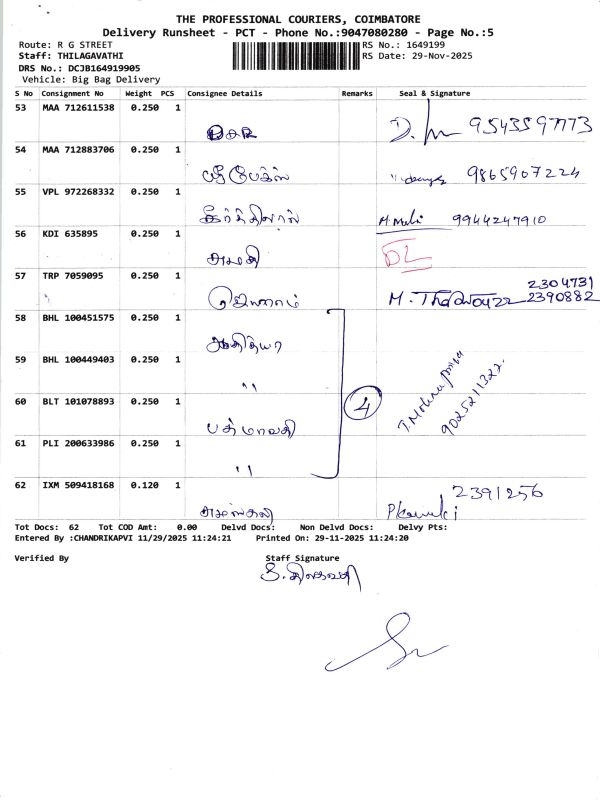 THE PROFESSIONAL COURIERS, COIMBATORE
Delivery Runsheet - PCT - Phone No.:9047080280 - Page No.:5
Route: R G STREET
RS No.: 1649199
Staff: THILAGAVATHI
RS Date: 29-Nov-2025
DRS No.: DCJB164919905
Vehicle: Big Bag Delivery
S No Consignment No Weight PCS Consignee Details Remarks Seal & Signature
53 MAA 712611538 0.250 1
9543597773
54 MAA 712883706 0.250 1
9865907224
55 VPL 972268332 0.250 1
M. Mali 9944247910
56 KDI 635895 0.250 1
அமுதி DL
57 TRP 7059095 0.250 1
2304731
ஜெயராம் 2390882
58 BHL 100451575 0.250 1
ஆதித்யா
59 BHL 100449403 0.250 1
" 4 9025211322
60 BLT 101078893 0.250 1
பத்மாவதி
61 PLI 200633986 0.250 1
"
62 IXM 509418168 0.120 1
2391256
Tot Docs: 62 Tot COD Amt: 0.00 Delvd Docs: Non Delvd Docs: Delvy Pts:
Entered By :CHANDRIKAPVI 11/29/2025 11:24:21 Printed On: 29-11-2025 11:24:20
Verified By Staff Signature